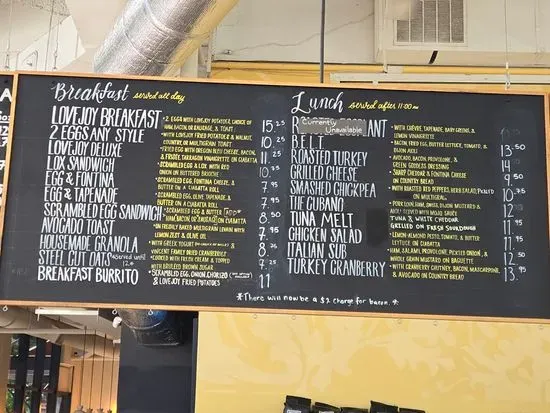 Breakfast served all day
LOVEJOY BREAKFAST
2 EGGS ANY STYLE
LOVEJOY DELUXE
LOX SANDWICH
EGG & FONTINA
EGG & TAPENADE
SCRAMBLED EGG SANDWICH
AVOCADO TOAST
HOUSEMADE GRANOLA
STEEL CUT OATS served until
BREAKFAST BURRITO
• 2 EGGS WITH LOVEJOY POTATOES, CHOICE OF
HAM, BACON, OR SAUSAGE, & TOAST
• WITH LOVEJOY FRIED POTATOES & WALNUT
COUNTRY, OR MULTIGRAIN TOAST
• FRIED EGG WITH OREGON BLEU CHEESE, BACON,
& FRISÉE, TARRAGON VINAIGRETTE, ON CIABATTA
• SCRAMBLED EGG & LOX WITH RED
ONION ON BUTTERED BRIOCHE
• SCRAMBLED EGG, FONTINA CHEESE, &
BUTTER ON A CIABATTA ROLL
• SCRAMBLED EGG, OLIVE TAPENADE, &
BUTTER ON A CIABATTA ROLL
• SCRAMBLED EGG & BUTTER
ON CIABATTA
• ON FRESHLY BAKED MULTIGRAIN LEVAIN WITH
LEMON ZEST & OLIVE OIL
• WITH GREEK YOGURT
VINCENT FAMILY DRIED CRANBERRIES
• COOKED WITH FRESH CREAM & TOPPED
WITH BRULEED BROWN SUGAR
• SCRAMBLED EGG, ONION, CHORIZO
& LOVEJOY FRIED POTATOES
15.25
10.25
11.25
10.25
7.95
7.95
8.50
7.95
8.25
7.25
11
Lunch served after 11:00 AM
Currently
Unavailable
BELT
ROASTED TURKEY
GRILLED CHEESE
SMASHED CHICKPEA
THE CUBANO
TUNA MELT
CHICKEN SALAD
ITALIAN SUB
TURKEY CRANBERRY
• WITH CHEVRE, TAPENADE, BABY GREENS, &
LEMON VINAIGRETTE
BACON, FRIED EGG, BUTTER LETTUCE, TOMATO, &
• AVOCADO, BACON, PROVOLONE, &
GREEN GODDESS DRESSING
• SHARP CHEDDAR & FONTINA CHEESE
ON COUNTRY BREAD
• WITH ROASTED RED PEPPERS, HERB SALAD, PICKLED
ON MULTIGRAIN
• PORK LOIN, HAM, SWISS, DIJON MUSTARD &
AIOLI SERVED WITH MOJO SAUCE
TUNA & WHITE CHEDDAR
GRILLED ON FRESH SOURDOUGH
• LEMON-ALMOND PESTO, TOMATO, & BUTTER
LETTUCE ON CIABATTA
• HAM, SALAMI, PROVOLONE, PICKLED ONION, &
WHOLE GRAIN MUSTARD ON BAGUETTE
• WITH CRANBERRY CHUTNEY, BACON, MASCARPONE,
& AVOCADO ON COUNTRY BREAD
13.50
14
9.50
10.75
12
11
11.95
12.25
13.95
*There will now be a $2 charge for bacon.*